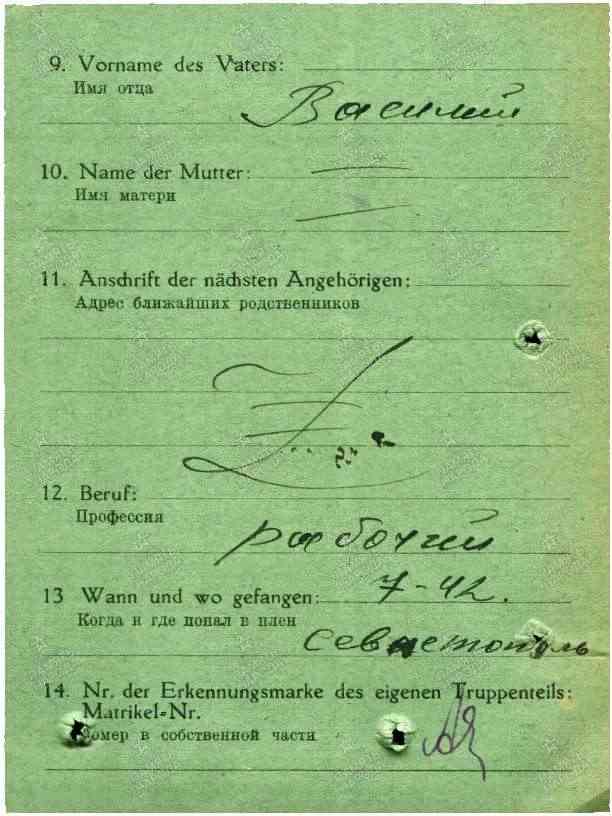 9. Vorname des Vaters:
Имя отца
Василий
10. Name der Mutter:
Имя матери
11. Anschrift der nächsten Angehörigen:
Адрес ближайших родственников
12. Beruf:
Профессия
рабочий
13 Wann und wo gefangen: 7-42.
Когда и где попал в плен
Севастополь
14. Nr. der Erkennungsmarke des eigenen Truppenteils:
Matrikel-Nr.
Номер в собственной части